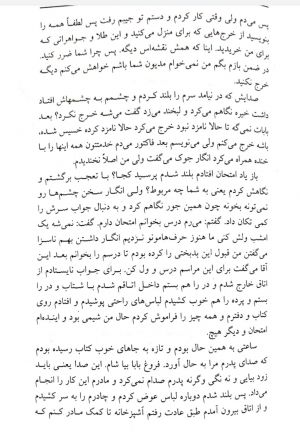 پس می‌دم ولی وقتی کار کردم و دستم تو جیبم رفت پس لطفاً همه را
بنویسید از خرج‌هایی که برای منزل می‌کنید و این طلا و جواهراتی که
برای من خریدید. اینا که همش نقشه‌اس دیگه. پس چرا شما ضرر کنید.
در ضمن بازم بگم من نمی‌خوام مدیون شما باشم خواهش می‌کنم دیگه
خرج نکنید.
صدایش که در نیامد سرم را بلند کردم و چشمم به چشمهاش افتاد
داشت خیره نگاهم می‌کرد و لبخند می‌زد گفت می‌شه خرج نکرد؟ بعد
بابات نمی‌گه تا حالا نامزد نبود خرج می‌کرد حالا نامزد کرده خسیس شده.
باشه خرج می‌کنم ولی می‌نویسم بعد فاکتور می‌دم خدمتتون همه اینها را با
خنده همراه می‌کرد انگار جوک می‌گفت ولی من اصلاً نخندیدم.
باز یاد امتحان افتادم بلند شدم پرسید کجا؟ با تعجب برگشتم و
نگاهش کردم یعنی به شما چه مربوط؟ ولی انگار سخن چشم‌ها رو
نمی‌تونه بخونه چون همین جور نگاهم کرد و به دنبال جواب سرش را
کمی تکان داد. گفتم: می‌رم درس بخوانم امتحان دارم. گفت: نمی‌شه یک
امشب ولش کنی ما هنوز حرف‌هامونو نزدیم انگار داشتن بهم ناسزا
می‌گفتن من قبول این بدبختی را کرده بودم تا درسم را بخوانم بعد این
آقا می‌گفت برای این مراسم درس و ول کن. برای جواب نایستادم از
اتاق خارج شدم و در را هم بستم داخل اتاقم شدم با شتاب و در را
بستم و پرده را هم خوب کشیدم لباس‌های راحتی پوشیدم و افتادم روی
کتاب و دفترم و همه چیز را فراموش کردم حال من شیمی بود و اینده‌ام
امتحان و دیگر هیچ.
ساعتی به همین حال بودم و تازه به جاهای خوب کتاب رسیده بودم
که صدای پدرم مرا به حال آورد. فروغ بابا بیا شام. این صدا یعنی باید
زود بیایی و نه نگی وگرنه پدرم صدام نمی‌کرد و مادرم این کار را انجام
می‌داد. پس بلند شدم دوباره لباس عوض کردم و چادرم را به سر کشیدم
و از اتاق بیرون آمدم طبق عادت رفتم آشپزخانه تا کمک مادر کنم که